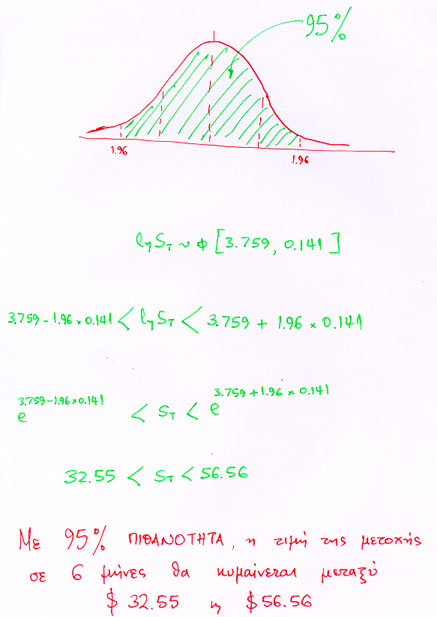 95%
1.96 1.96
lnSτ ~ φ [3.759, 0.141]
3.759 - 1.96 × 0.141 < lnSτ < 3.759 + 1.96 × 0.141
e^3.759-1.96×0.141 < Sτ < e^3.759+1.96×0.141
32.55 < Sτ < 56.56
Με 95% ΠΙΘΑΝΟΤΗΤΑ, η τιμή της μετοχής
σε 6 μήνες θα κυμαίνεται μεταξύ
$ 32.55 κ $56.56